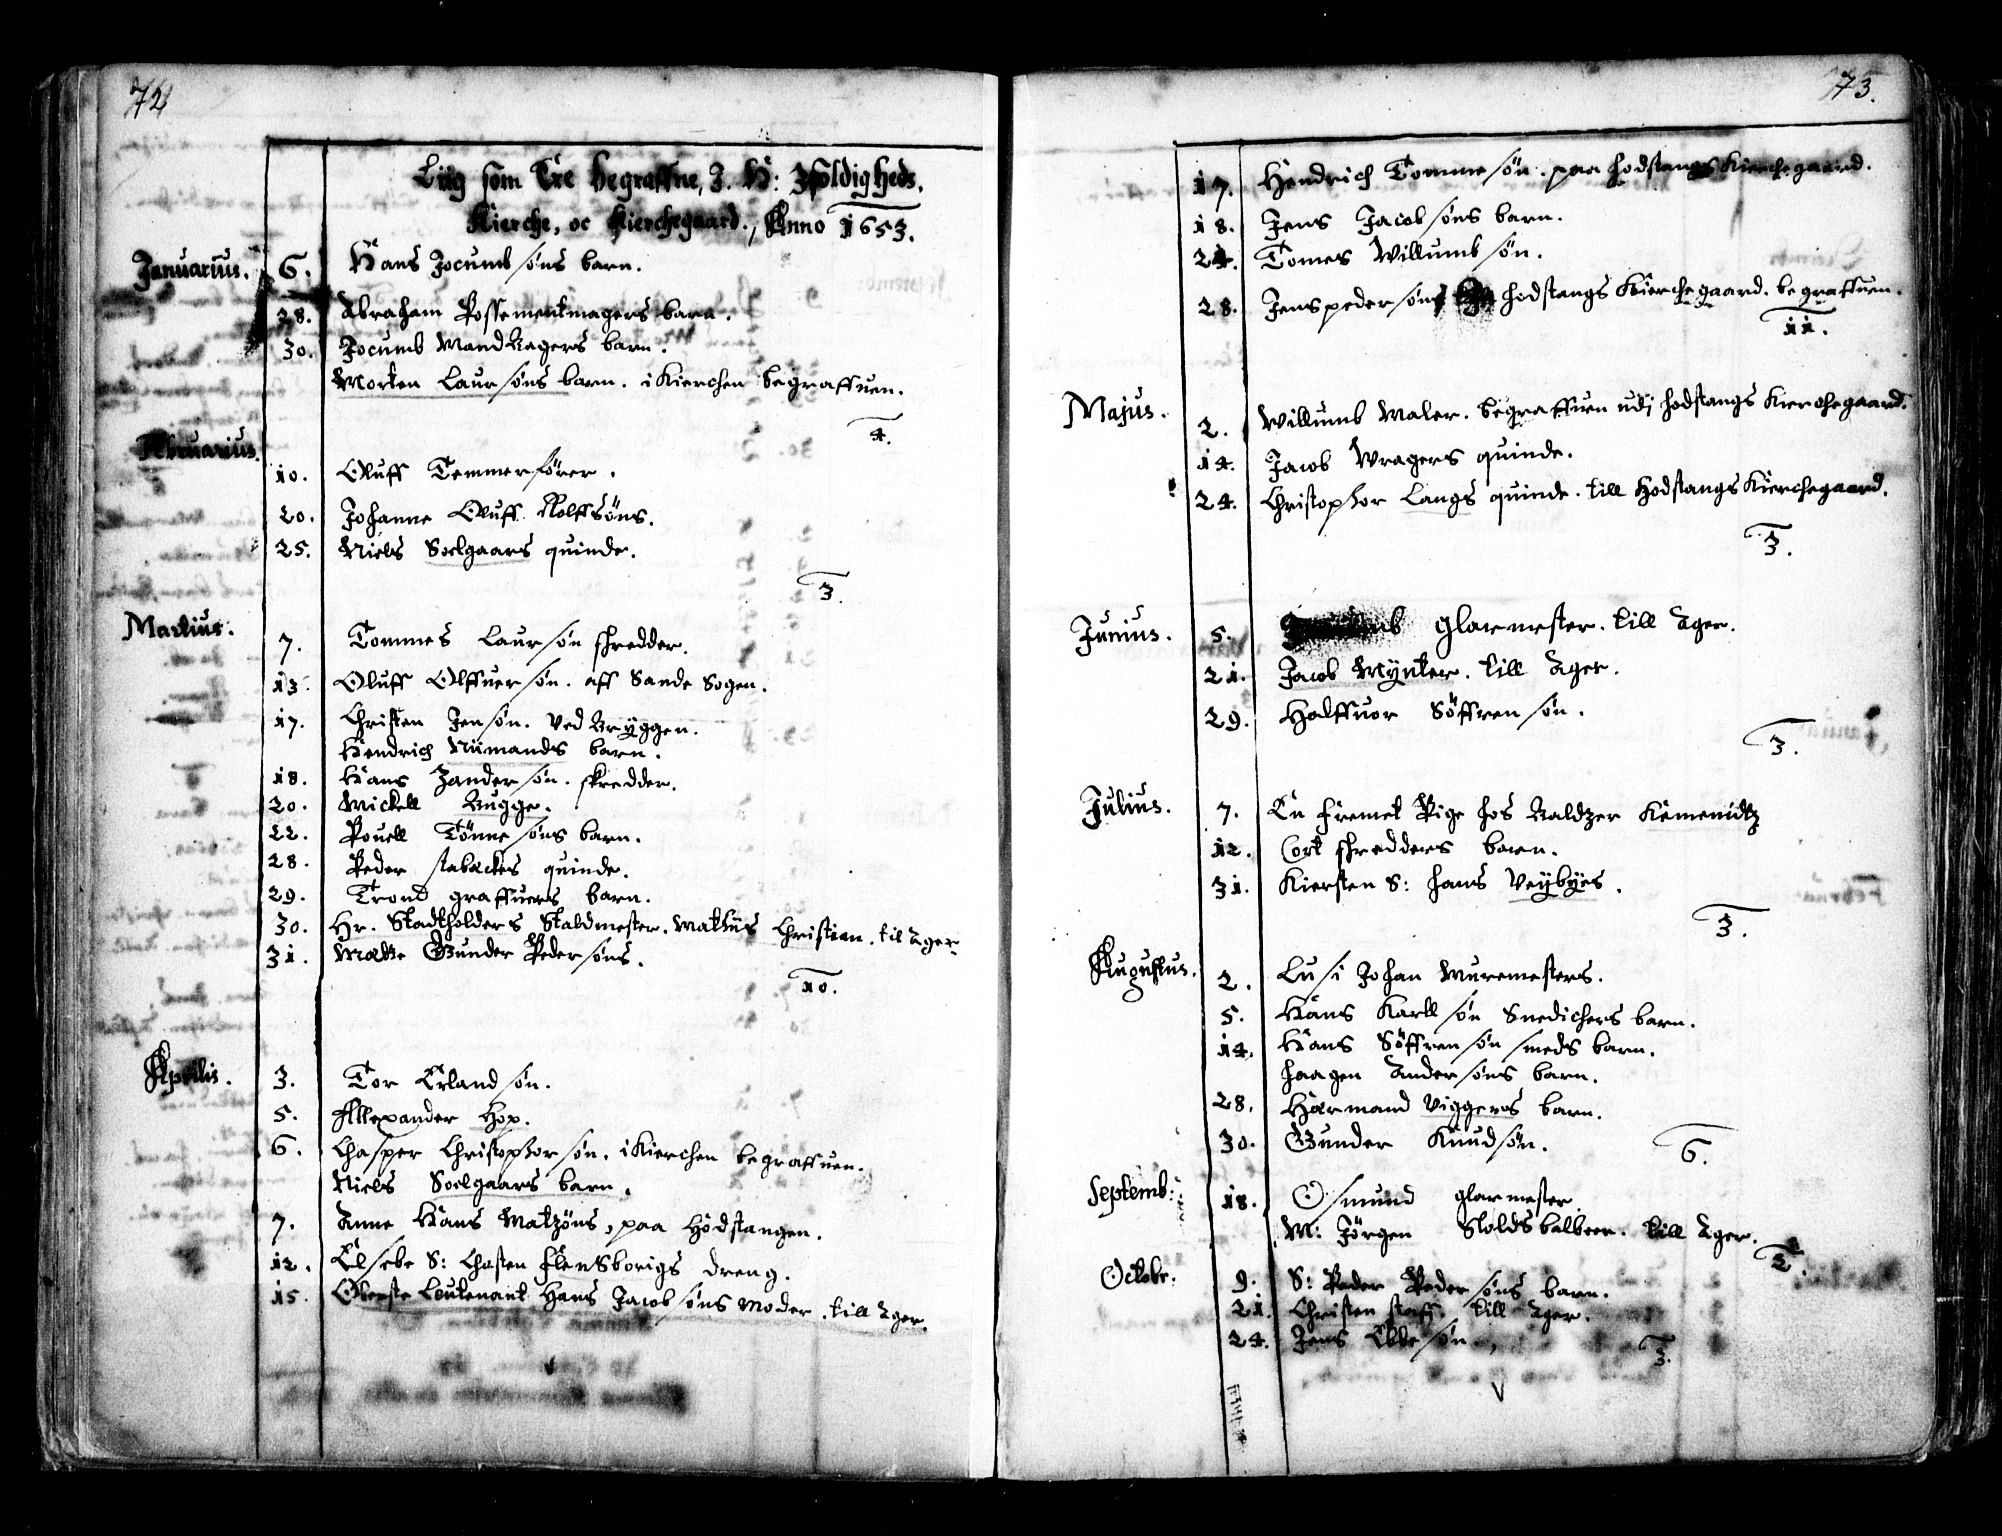 72
Liig som Ere begraffne, J. H: 3foldigheds,
Kierche, oc Kierchegaard, Anno 1653.
Januarius. 6. Hans Jocumb søns barn.
28. Abraham Possementmagers barn.
30. Jocumb Mandbagers barn.
Morten Laursøns barn. i Kierchen begraffuen.
4.
Februarius. 10. Oluff Temmerfører.
20. Johanne Oluff Rolffsöns.
25. Niels Soelgaars quinde.
3.
Martius. 7. Tommes Laursøn skredder.
13. Oluff Olffuersøn. aff Sande Sogen.
17. Christen Jensøn. ved Bryggen.
Hendrich Niimands barn.
18. Hans Zandersøn. skredder.
20. Mickell Bugge.
22. Pouell Tönnesøns barn.
28. Peder stabackes quinde.
29. Trond graffuers barn.
30. Hr. Stadtholders Staldmester. Mathiis Christian. til Ager
31. Mætte Gunder Pedersøns.
10.
Aprilis. 3. Tor Erlandsøn.
5. Allexander Hop.
6. Chasper Christophorsøn. i Kierchen begraffuen.
Niels Soelgaars barn.
7. Anne Hans Matzöns, paa Hodstangen.
12. Elsebe S: Chasten Flensborigs dreng.
15. Oberste Leutenant Hans Jacobsøns Moder. till Ager.
73.
17. Hendrich Tommesøn. paa hodstangs Kierchegaard.
18. Jens Jacobsøns barn.
24. Tomes Willumbsøn.
28. Jens pedersøns hodstangs Kierchegaard. begraffuen.
11.
Majus. 2. Willumb Maler. begraffuen udj hodstangs Kierchegaard.
14. Jacob Wragers quinde.
24. Christophor Langs quinde. till Hodstangs Kierchegaard.
3.
Junius. 5. glarmester. till Ager.
21. Jacob Mynter. till Ager.
29. Halffuor Söffrensøn.
3.
Julius. 7. En fremet Pige hos Baldzer Kemenidtz
12. Cort skredders barn.
31. Kiersten S: hans Veybyes.
3.
Augustus. 2. Lusi Johan Muremesters.
5. Hans Karllsøn Snedichers barn.
14. Hans Söffrensøn smeds barn.
haagen Andersøns barn.
28. Harmand Viggers barn.
30. Gunder Knudsøn.
6.
Septemb: 18. Osmund glarmester
M: Jörgen Skoldsbalbeer. till Ager.
2.
Octobr: 9. S: Peder Pedersøns barn.
21. Christen staff. till Ager.
24. Jens Ebbesøn,
3.